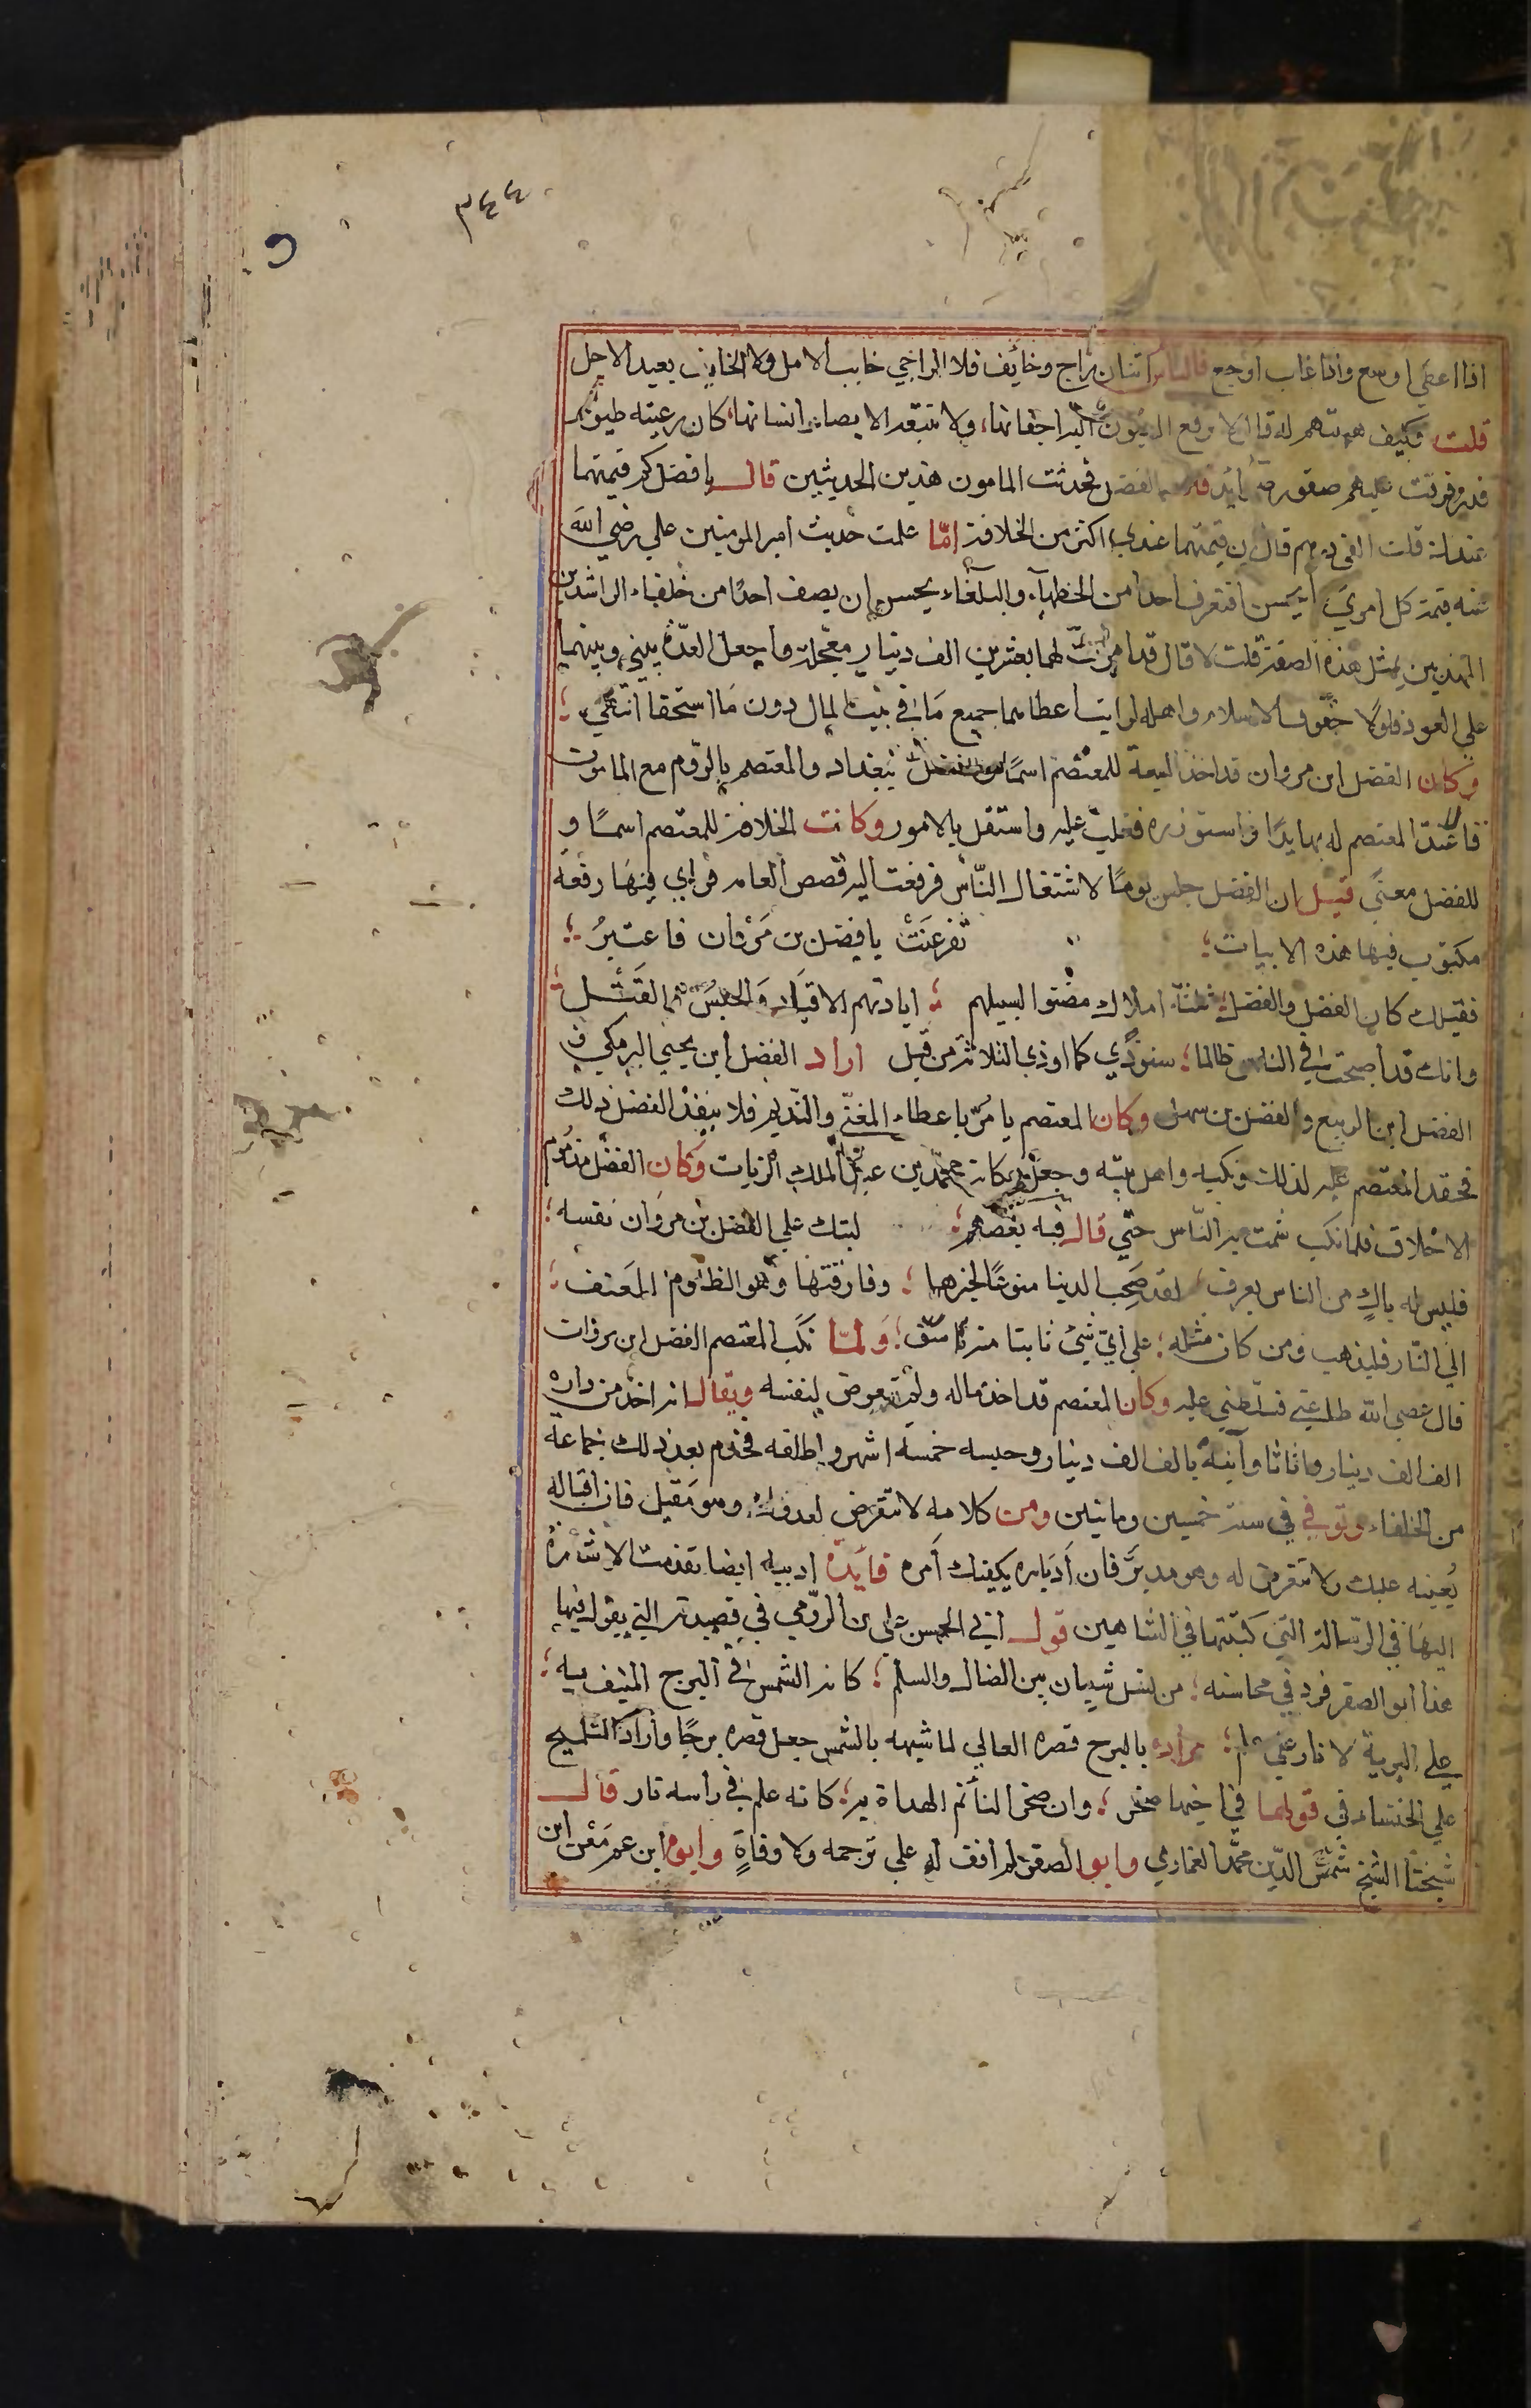 ٣٤٤
اذا اعطي اوسع واذا عاب اوجع قال الناس اثنان راج وخائف فلا الراجي خايب الامل ولا الخايف بعيد الاجل
قلت فكيف هيبتهم له قال لا ترفع العيون اليه اجفانها ولا تتبعه الابصار انسانها كان رعيته طيور
فرفرفت عليهم صقور صوايد الفضل فحدثت المامون هذين الحديثين قال يا فضل كم قيمتهما
عندك قلت الفي درهم قال ان قيمتهما عندي اكثر من الخلافة امّا علمت حديث امير المومنين علي رضي الله
عنه قيمة كل امرئ ما يحسن افتعرف احدا من الخطباء والبلغاء يحسن ان يصف احدًا من خلفاء الراشدين
المهذبين بمثل هذه الصفة قلت لا قال قد امرت لهما بعشرين الف دينار معجّلة واجعل العدّة بيني وبينهما
علي العود فلولا حقوق الاسلام واهله لرايت اعطاهما جميع ما في بيت المال دون ما استحقا انتهي
وكان الفضل ابن مروان قد اخذ البيعة للمعتصم ببغداد والمعتصم بالرّوم مع المامون
فاعتدّ المعتصم له بها يدًا واستوزره فغلب عليه واستقل بالامور وكانت الخلافة للمعتصم اسمًا و
للفضل معنًي قيل ان الفضل جلس يومًا لاشتغال النّاس فرفعت اليه قصص العامه فراي فيها رقعة
مكتوب فيها هذه الابيات؛ تفرعنت يا فضل بن مروان فاعتبر؛
فقبلك كان الفضل والفضل والفضل؛ ثلثة املاك مضوا لسبيلهم؛ ابادتهم الاقياد والحبس والقتل
وانك قد اصبحت في الناس ظالما؛ ستوذي كما اوذي الثلاثة من قبل اراد الفضل ابن يحيي البرمكي و
الفضل ابن الربيع والفضل بن سهل وكان المعتصم يامر باعطاء المغنّي والنّديم فلا ينفذ الفضل ذلك
فحقد المعتصم عليه لذلك ونكبه واهل بيته وجعل مكانه محمّد بن عبد الملك الزيات وكان الفضل مذموم
الاخلاق فلما نكب شمت به النّاس حتّي قال فيه بعضهم؛ لتبك علي الفضل بن مروان نفسه؛
فليس له باكٍ من الناس يعرف لقد صَحِب الدنيا منوعًا لخيرها؛ وفارقها وهو الظلوم المعنف؛
الي النّار فليذهب ومن كان مثله؛ علي ايّ شيء فاتنا منه ناسف؛ ولمّا نكب المعتصم الفضل ابن مروان
قال عصي الله طاعتي فسلّطني عليه وكان المعتصم قد اخذ ماله ولم يتعرض لنفسه ويقال انه اخذ من داره
الف الف دينار واثاثا وآنيةً بالف الف دينار وحبسه خمسة اشهر واطلقه فخدم بعد ذلك جماعة
من الخلفاء وتوفي في سنة خمسين ومايتين ومن كلامه لا تتعرض لعدوك وهو مقبل فان اقباله
يعينه عليك ولا تتعرض له وهو مدبرٌ فان اَدباره يكفيك اَمره فايدة ادبيه ايضا تقدمت الاشارة
اليها في الرسالة التي كتبتها في الشاهين قول ابي الحسن علي بن الرّومي في قصيدته التي يقول فيها
هذا ابو الصقر فرد في محاسنه؛ من نسل شيبان بين الضال والسلم؛ كانه الشمس في البرج المنيف به؛
علي البرية لا نار علي علم؛ مراده بالبرج قصره العالي لما شبهه بالشمس جعل قصره برجًا واراد التلميح
علي الخنساء في قولها في اخيها صخر؛ وان صخرا لتأتم الهداة به؛ كانه علم في راسه نار قال
شيخنا الشيخ شمس الدّين محمّد الغماري وابو الصقر لم اقف له علي ترجمه ولا وفاةٍ وابوه ابن عم معن ابن